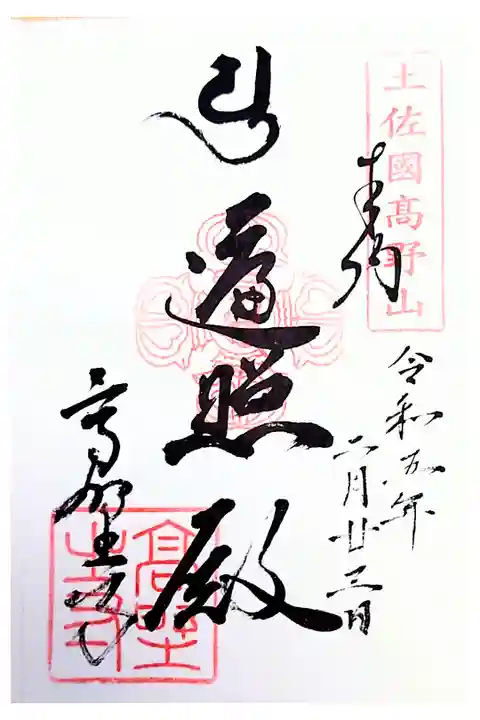 土佐國髙野山
奉拝
令和五年
二月廿三日
遍照殿
高野寺
高野寺